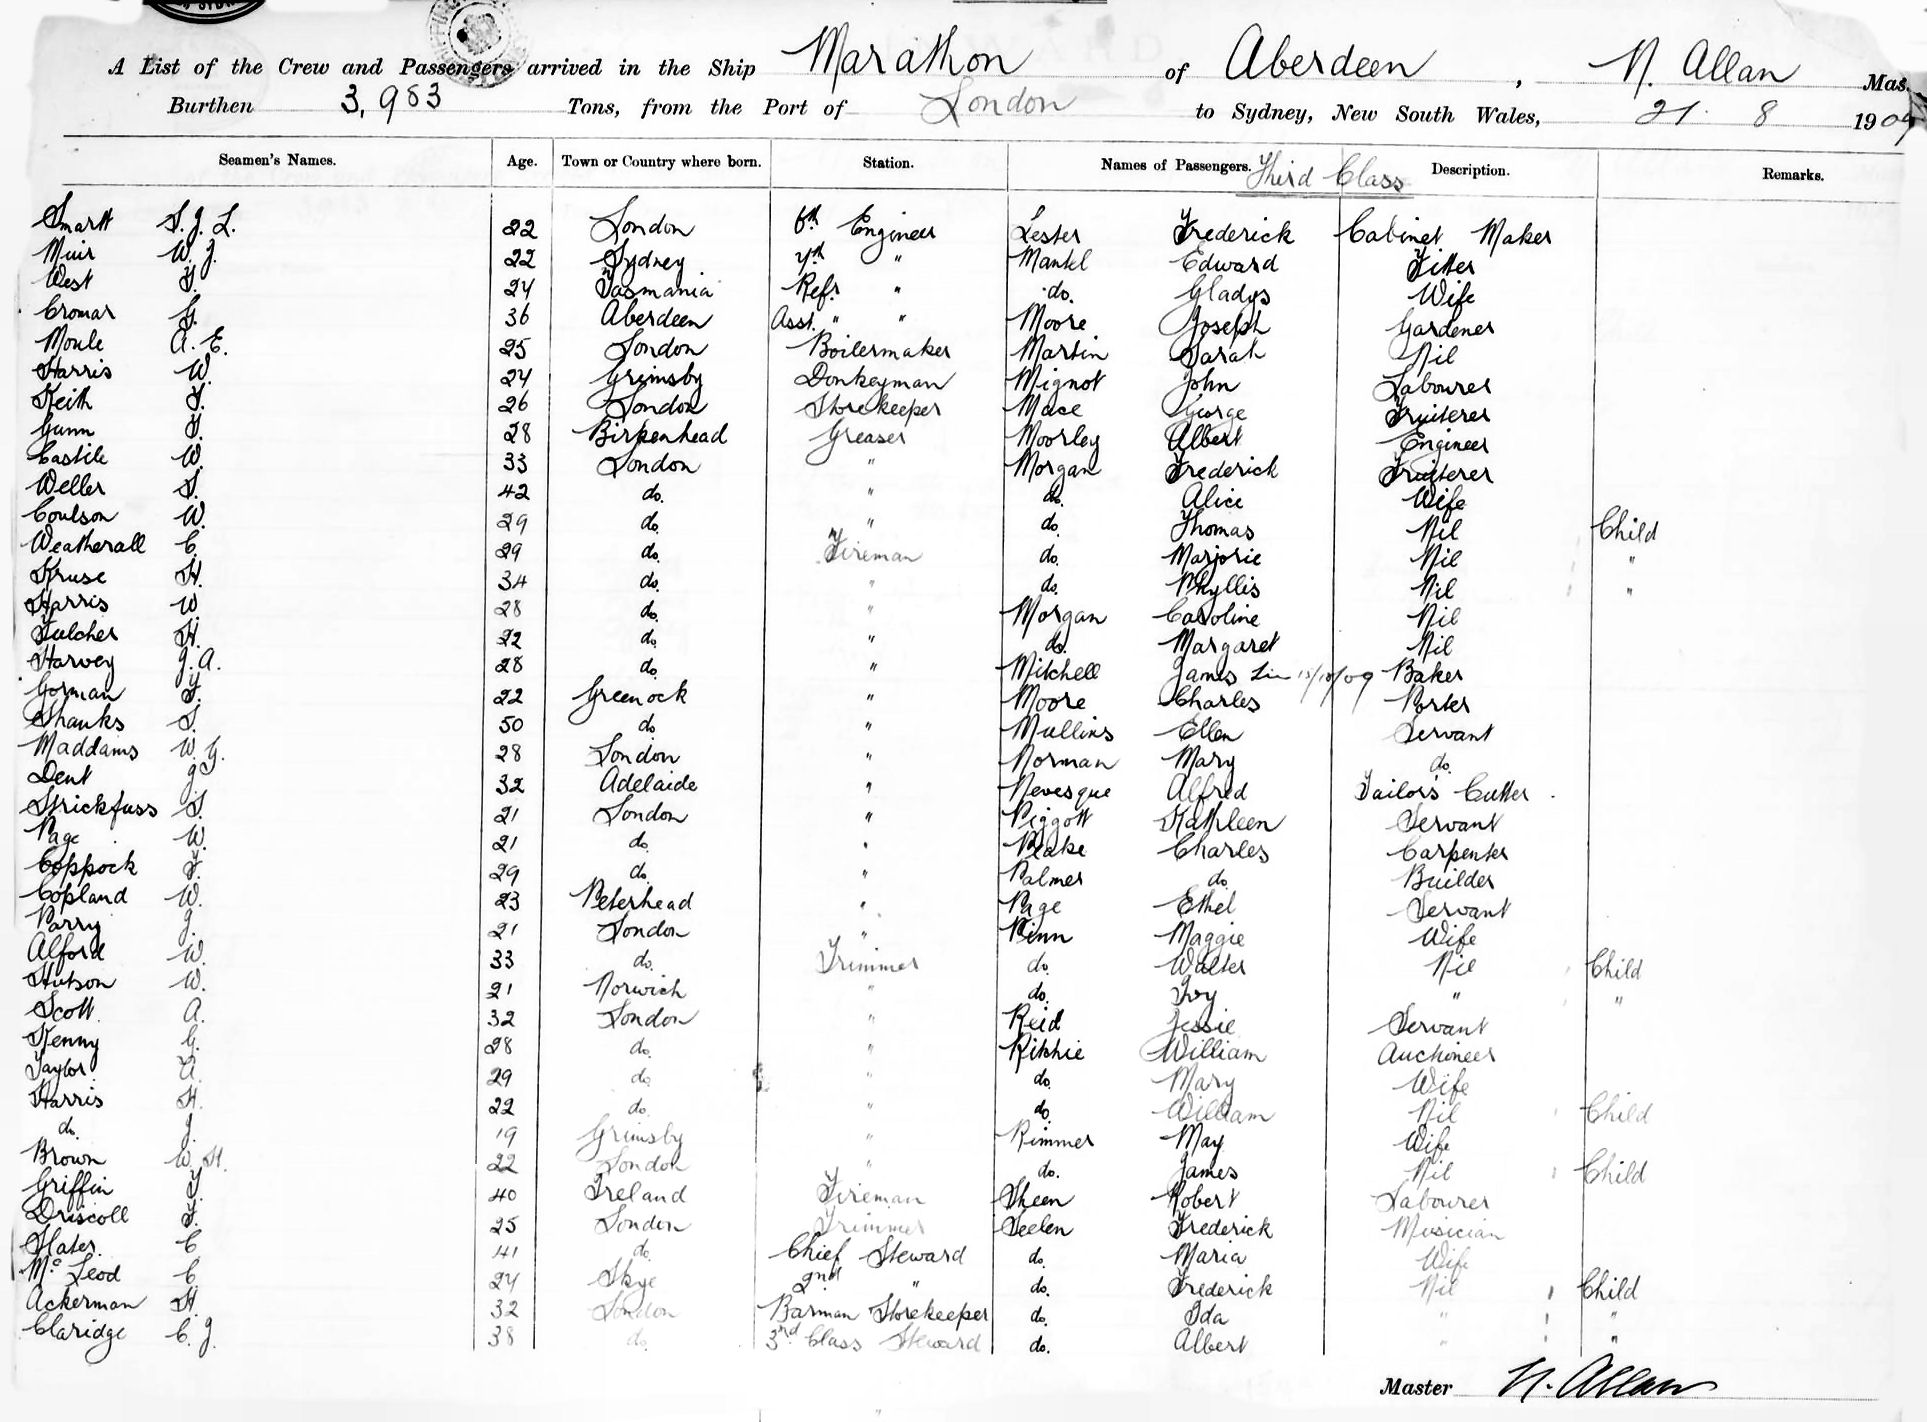 A List of the Crew and Passengers arrived in the Ship Marathon of Aberdeen, N. Allan Mas.
Burthen 3,983 Tons, from the Port of London to Sydney, New South Wales, 21 8 1909
Seamen's Names. Age. Town or Country where born. Station. Names of Passengers. Third Class Description. Remarks.
Smartt S. J. L. 22 London 6th Engineer Lester Frederick Cabinet Maker
Muir W. J. 22 Sydney 7th " Mantel Edward Fitter
West F. 24 Tasmania Refr. " do. Gladys Wife
Cromar G. 36 Aberdeen Asst. " " Moore Joseph Gardener
Moule A. E. 25 London Boilermaker Martin Sarah Nil
Harris W. 24 Grimsby Donkeyman Mignot John Labourer
Keith F. 26 London Storekeeper Mace George Fruiterer
Gunn F. 28 Birkenhead Greaser Moorley Albert Engineer
Castile W. 33 London " Morgan Frederick Fruiterer
Weller S. 42 do. " do. Alice Wife
Coulson W. 29 do. " do. Thomas Nil Child
Weatherall C. 29 do. Fireman do. Marjorie Nil "
Kruse H. 34 do. " do. Phyllis Nil "
Harris W. 28 do. " Morgan Caroline Nil
Fulcher H. 22 do. " do. Margaret Nil
Harvey J. A. 28 do. " Mitchell James Baker
Gorman F. 22 Greenock " Moore Charles Porter
Shanks S. 50 do " Mullins Ellen Servant
Maddams W. G. 28 London " Norman Mary do.
Dent J. 32 Adelaide " Nevesque Alfred Tailor's Cutter
Strickfuss S. 21 London " Piggott Kathleen Servant
Page W. 21 do. " Blake Charles Carpenter
Coppock F. 29 do. " Palmer do. Builder
Copland W. 23 Peterhead " Page Ethel Servant
Parry J. 21 London " Penn Maggie Wife
Alford W. 33 do. Trimmer do. Walter Nil Child
Hutson W. 21 Norwich " do. Ivy " "
Scott A. 32 London " Reid Jessie Servant
Kenny G. 28 do. " Ritchie William Auctioneer
Taylor A. 29 do. " do. Mary Wife
Harris H. 22 do. " do. William Nil Child
do. J. 19 Grimsby " Rimmer May Wife
Brown W. H. 22 London " do. James Nil Child
Griffin T. 40 Ireland Fireman Skeen Robert Labourer
Driscoll F. 25 London Trimmer Seelen Frederick Musician
Slater C 41 do. Chief Steward do. Maria Wife
McLeod C. 24 Skye 2nd " do. Frederick Nil Child
Ackerman H. 32 London Barman Storekeeper do. Ida " "
Claridge C. J. 38 do. 3rd Class Steward do. Albert " "
Master N. Allan